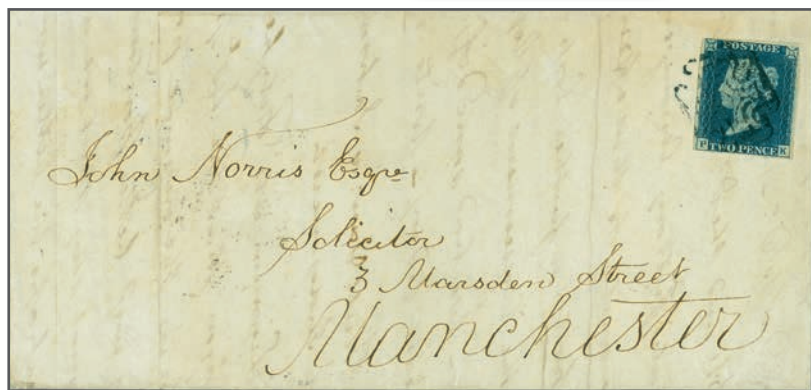 POSTAGE
P TWO PENCE K
John Norris Esqre
Solicitor
3 Marsden Street
Manchester